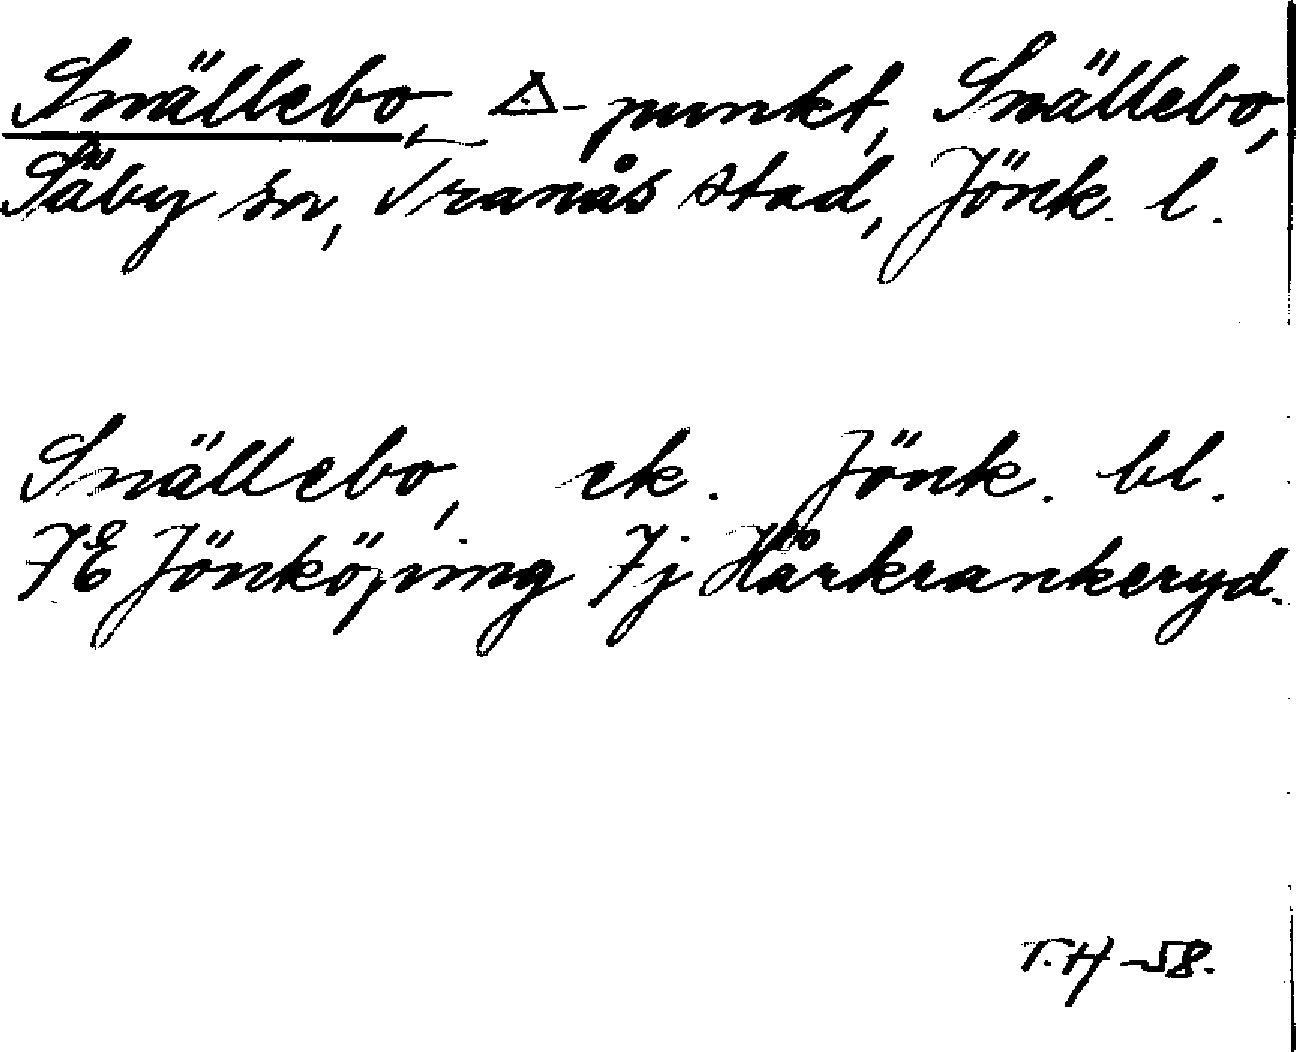 Snällebo, △-punkt, Snällebo,
Säby sn, Tranås stad, Jönk. l.
Snällebo, ek. Jönk. bl.
7E Jönköping 7j Hårkrankeryd.
T.H -58.